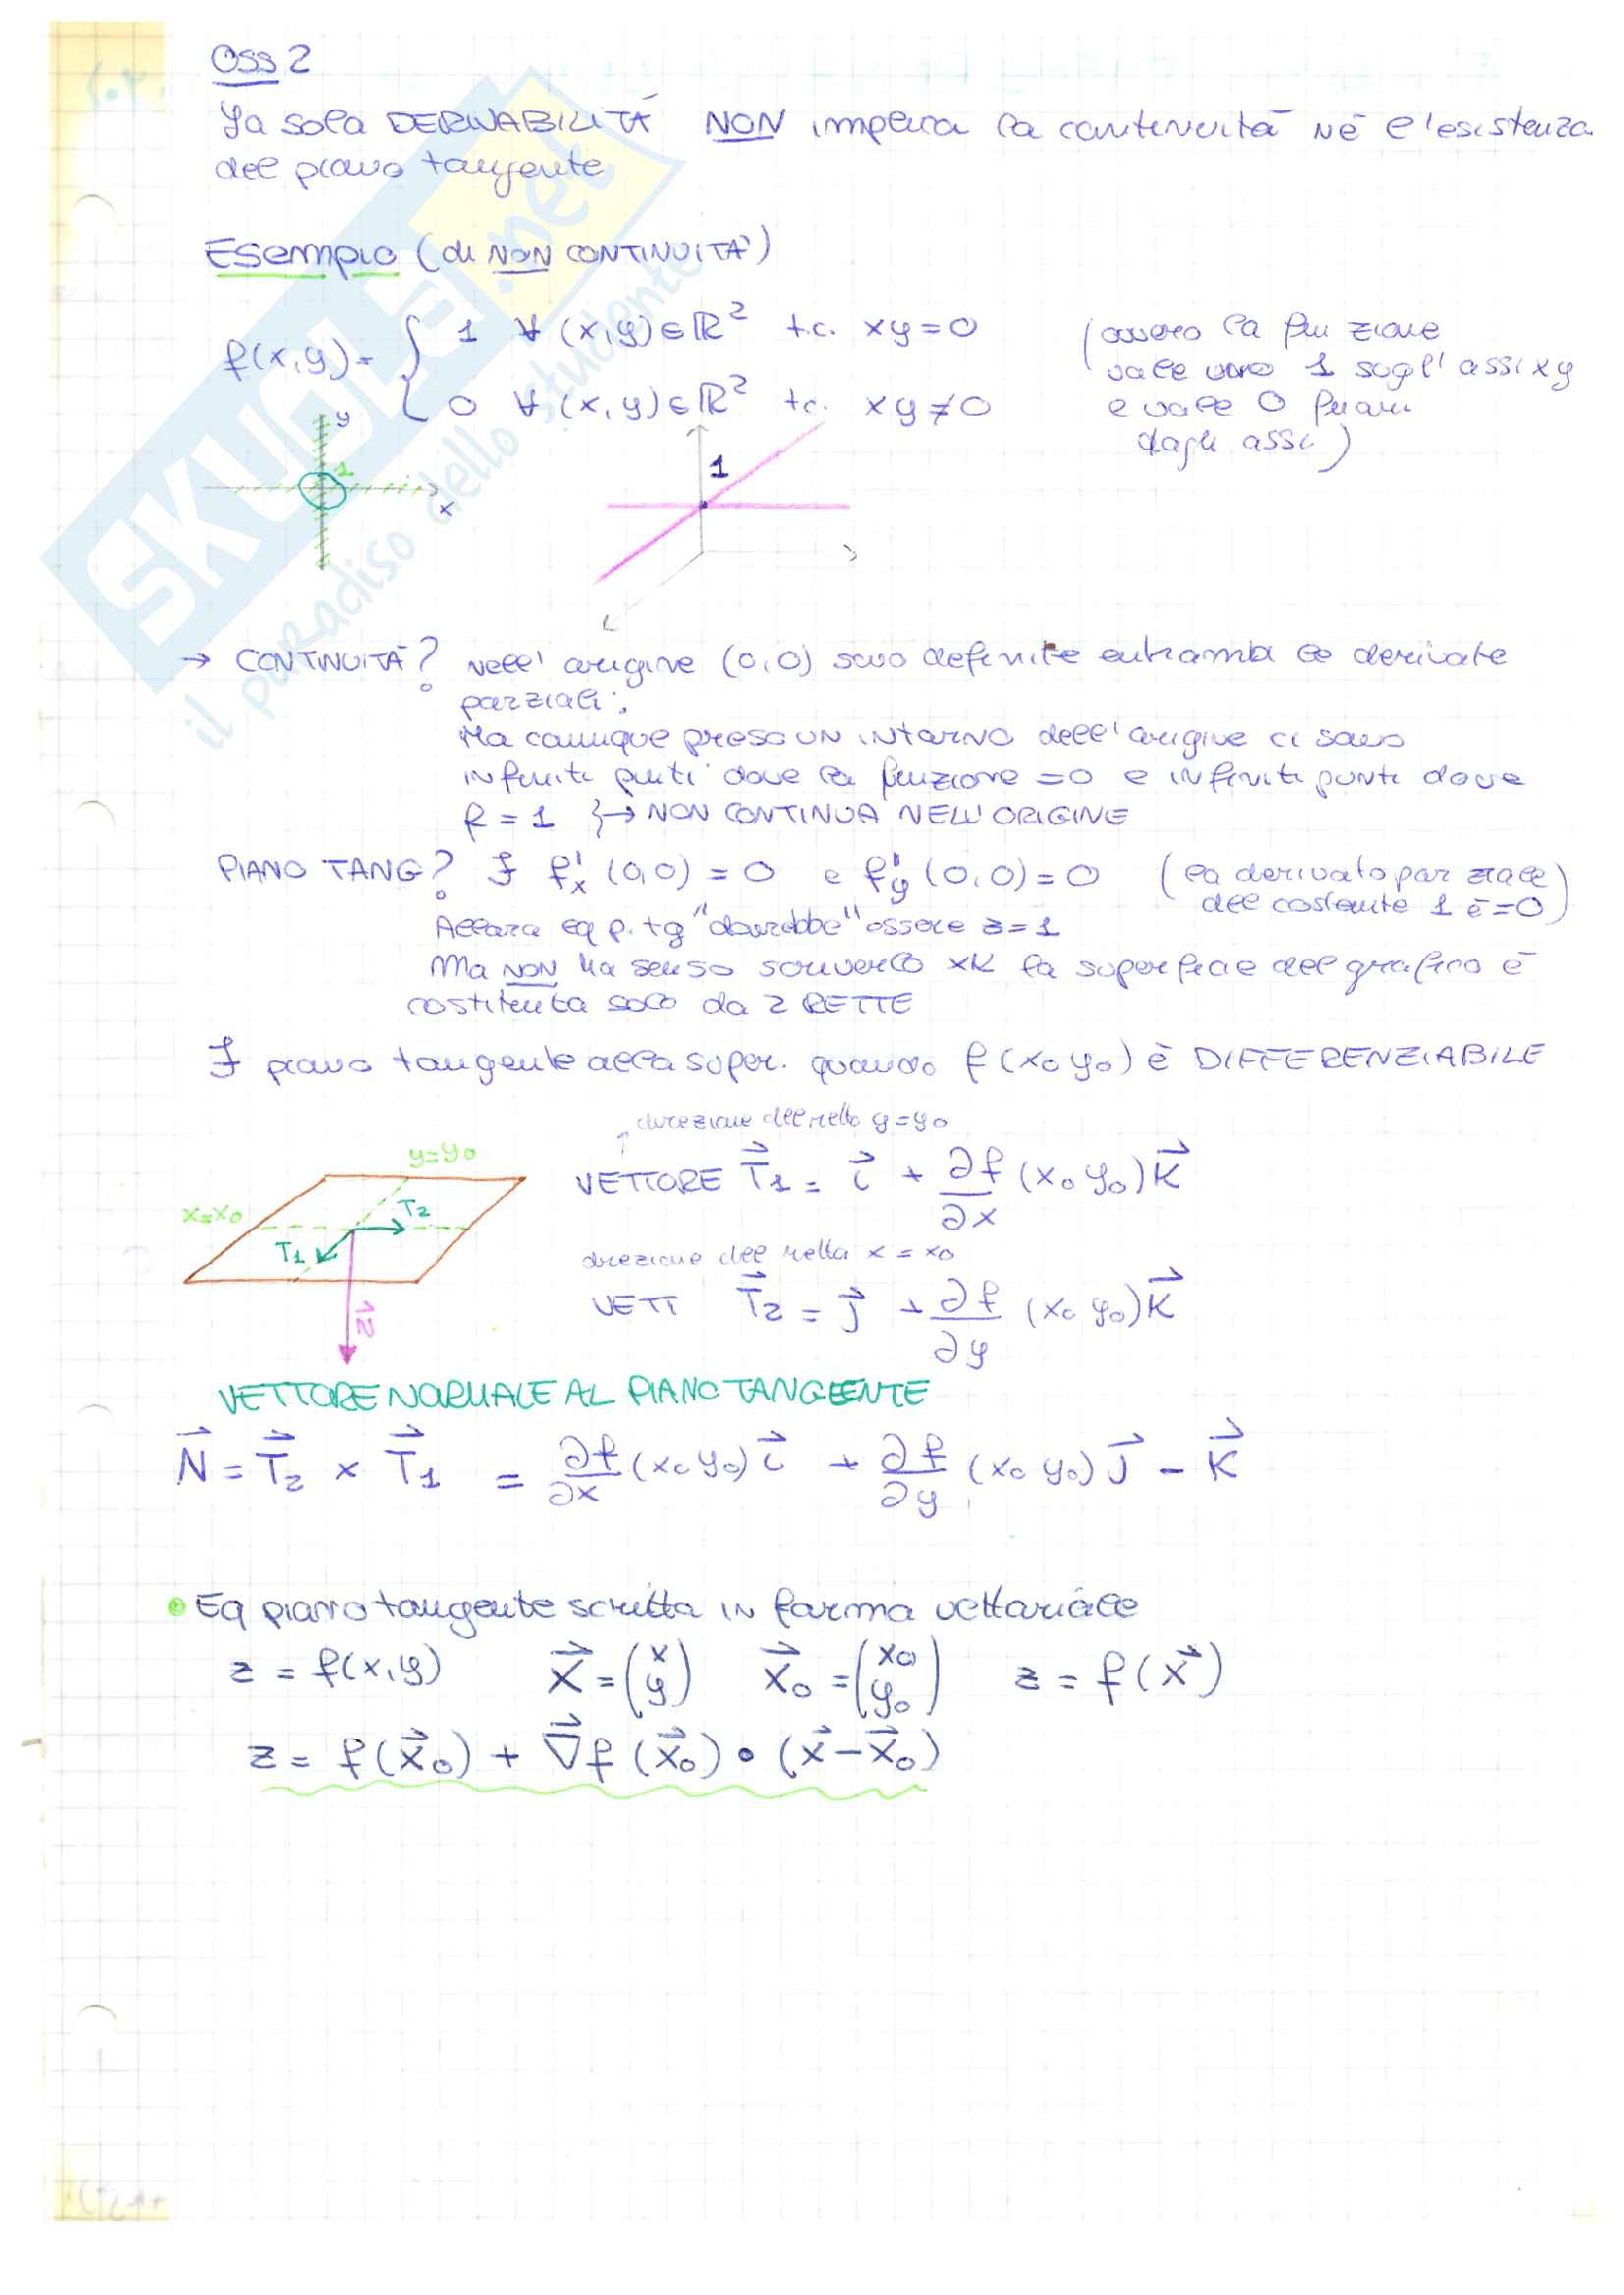 OSS 2
La sola DERIVABILITÀ NON implica la continuità nè l'esistenza
del piano tangente
Esempio (di NON CONTINUITA')
f(x,y)= { 1 ∀ (x,y)∈ℝ² t.c. xy=0
0 ∀ (x,y)∈ℝ² t.c. xy≠0
(ovvero la funzione
vale 1 sugl'assi xy
e vale 0 fuori
dagli assi)
y
1
x
1
→ CONTINUITÀ? Nell'origine (0,0) sono definite entrambi le derivate
parziali;
Ma comunque preso un intorno dell'origine ci sono
infiniti punti dove la funzione =0 e infiniti punti dove
f = 1 }→ NON CONTINUA NELL'ORIGINE
PIANO TANG? ∃ f'x (0,0) = 0 e f'y (0,0) = 0 (la derivata parziale
del costante 1 è =0)
Allora eq p. tg "dovrebbe" essere z=1
Ma NON ha senso scriverlo xk la superficie del grafico è
costituita solo da 2 RETTE
∃ piano tangente alla super. quando f(x₀ y₀) è DIFFERENZIABILE
direzione del retta y=y₀
VETTORE T⃗1 = i⃗ + ∂f/∂x (x₀ y₀) K⃗
y=y₀
x=x₀
T2
T1
N
direzione del retta x = x₀
VETT T⃗2 = j⃗ + ∂f/∂y (x₀ y₀) K⃗
VETTORE NORMALE AL PIANO TANGENTE
N⃗ = T⃗2 × T⃗1 = ∂f/∂x (x₀ y₀) i⃗ + ∂f/∂y (x₀ y₀) J⃗ - K⃗
• Eq piano tangente scritta in forma vettoriale
z = f(x,y) X⃗ = (x y) X⃗₀ = (x₀ y₀) z = f(x⃗)
z = f(x⃗₀) + ∇⃗f (x⃗₀) • (x⃗-x⃗₀)
SKUOLA.net
il paradiso dello studente